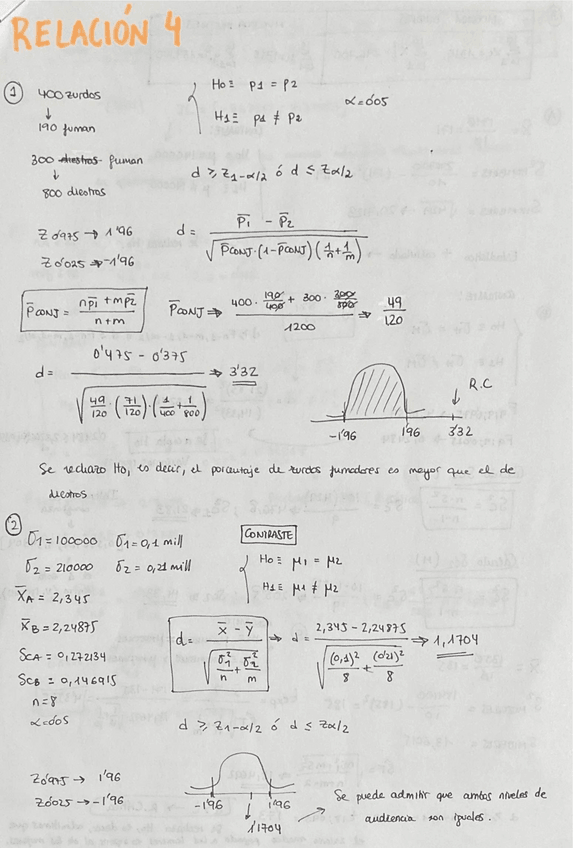 RELACIÓN 4
① 400 zurdos
↓
190 fuman
300 diestros fuman
↓
800 diestros
H0 ≡ p1 = p2
H1 ≡ p1 ≠ p2
α = 0'05
d ≥ Z1-α/2 ó d ≤ Zα/2
Z0'975 → 1'96
Z0'025 → -1'96
d = (p̄1 - p̄2) / √(p̄CONJ · (1 - p̄CONJ) (1/n + 1/m))
p̄CONJ = (np̄1 + mp̄2) / (n + m)
p̄CONJ ⇒ (400 · 190/400 + 300 · 300/800) / 1200 ⇒ 49/120
d = (0'475 - 0'375) / √(49/120 · (71/120) · (1/400 + 1/800)) ⇒ 3'32
R.C
-1'96 1'96 3'32
Se rechaza H0, es decir, el porcentaje de zurdos fumadores es mayor que el de
diestros
②
σ1 = 100000 σ1 = 0,1 mill
σ2 = 210000 σ2 = 0,21 mill
X̄A = 2,345
X̄B = 2,24875
ScA = 0,272134
ScB = 0,146915
n = 8
α = 0'05
CONTRASTE
H0 ≡ μ1 = μ2
H1 ≡ μ1 ≠ μ2
d = (x̄ - ȳ) / √(σ1²/n + σ2²/m) ⇒ d = (2,345 - 2,24875) / √((0,1)²/8 + (0'21)²/8) → 1,1704
d ≥ Z1-α/2 ó d ≤ Zα/2
Z0'975 → 1'96
Z0'025 → -1'96
-1'96 1'96
1'1704
Se puede admitir que ambos niveles de
audiencia son iguales.